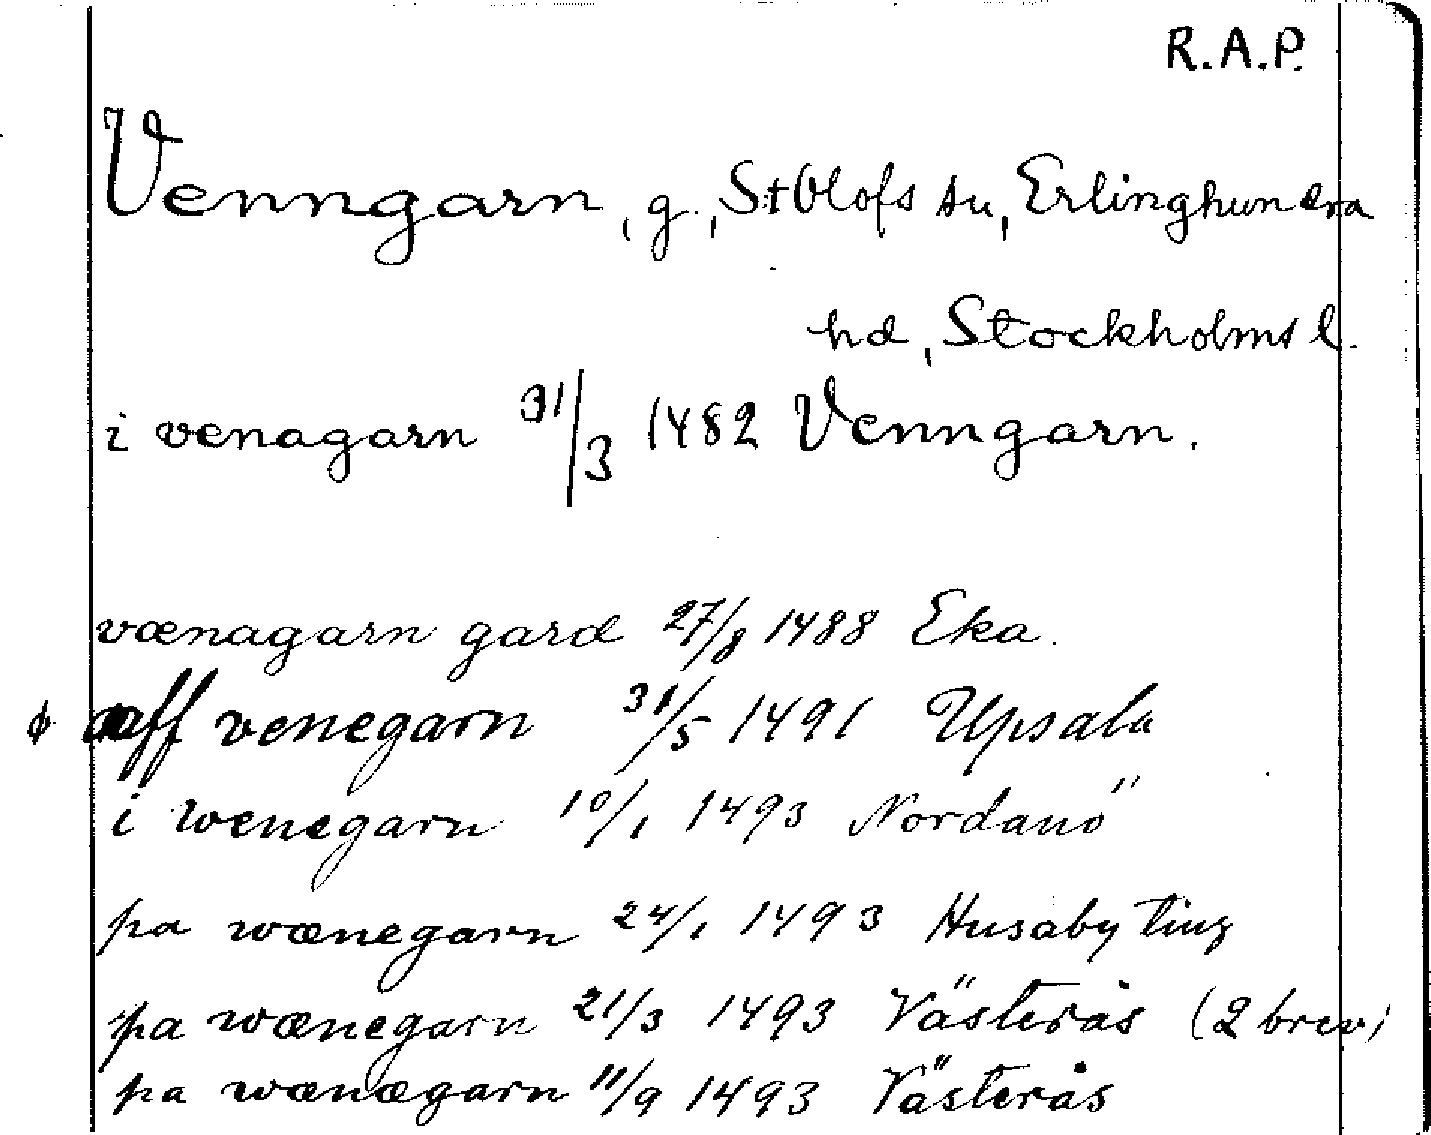 R.A.P.
Venngarn, g., St Olofs sn, Erlinghundra
hd, Stockholms l.
i venagarn 31/3 1482 Venngarn.
vænagarn gard 27/8 1488 Eka.
ϕ aff venegarn 31/5 1491 Upsala
i wenegarn 10/1 1493 Nordanö
pa wænegarn 24/1 1493 Husaby ting
pa wænegarn 21/3 1493 Västerås (2 brev)
pa wænægarn 11/9 1493 Västerås